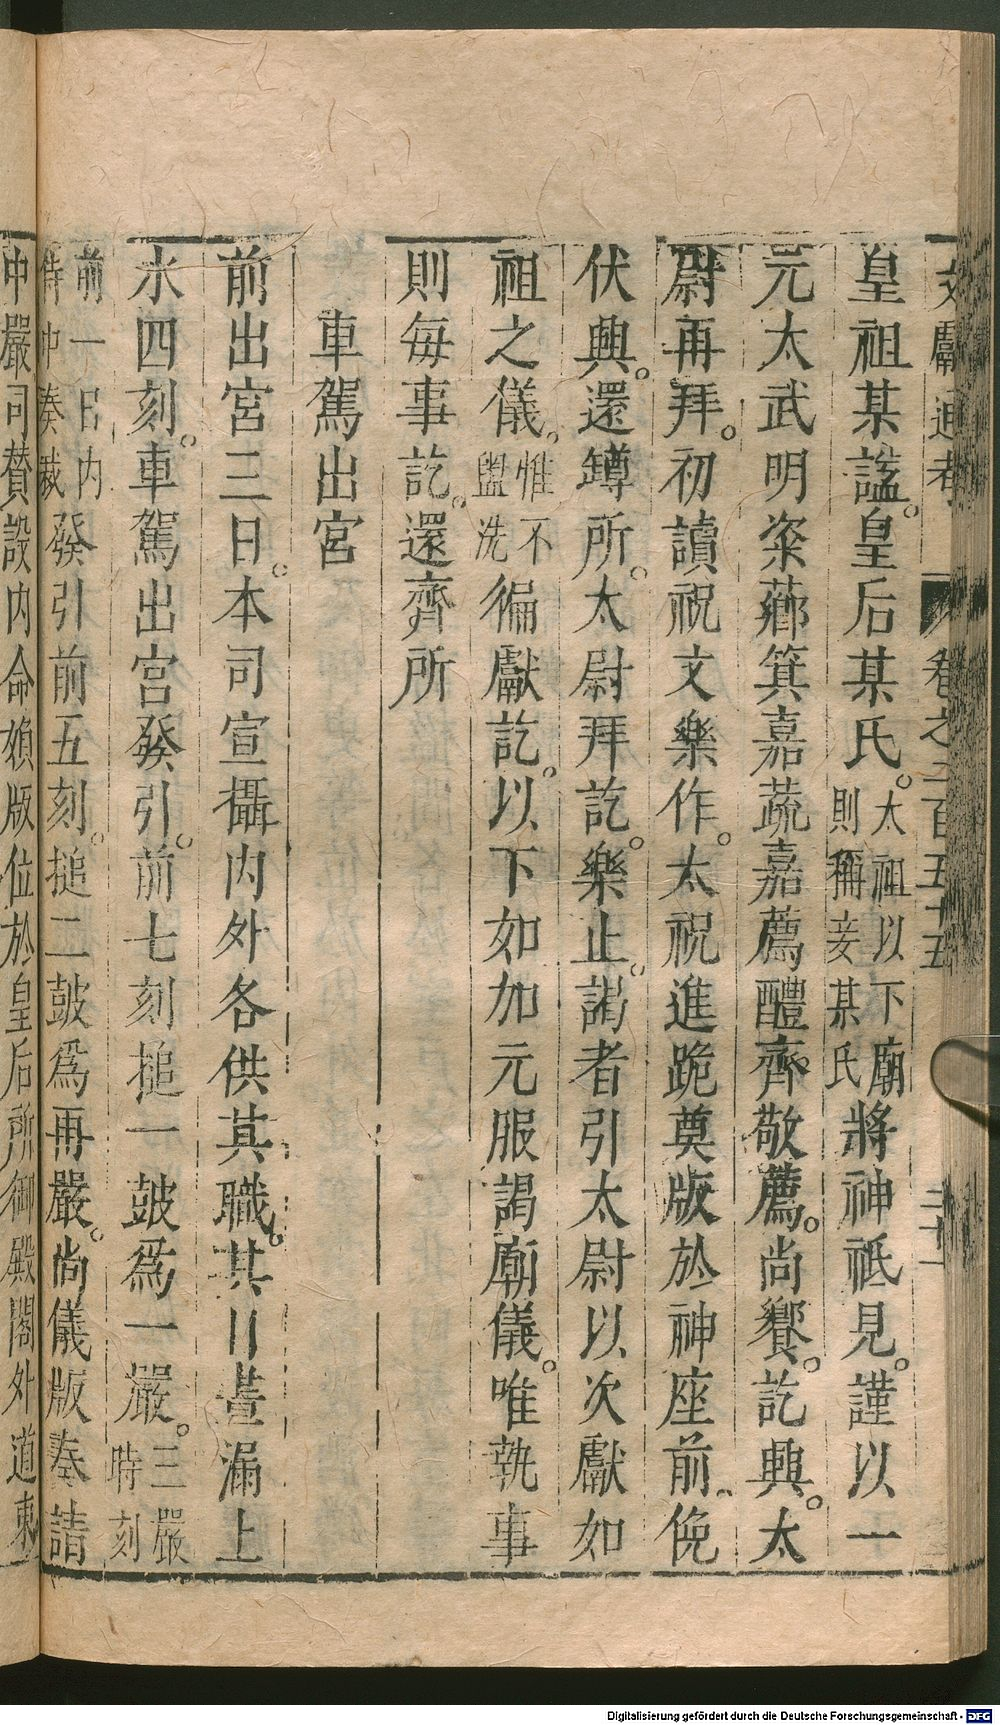 文獻通考 卷之二百五十五 二十一
皇祖某諡。皇后某氏。太祖以下廟則稱妾某氏將神祇見。謹以一
元太武明粢薌箕嘉蔬嘉薦醴齊敬薦。尚饗。訖興。太
尉再拜。初讀祝文樂作。太祝進跪奠版於神座前。俛
伏興。還罇所。太尉拜訖。樂止。謁者引太尉以次獻如
祖之儀。惟不盥洗徧獻訖。以下如加元服謁廟儀。唯執事
則每事訖。還齊所
車駕出宮
前出宮三日。本司宣攝內外各供其職。其日晝漏上
水四刻。車駕出宮發引。前七刻搥一鼓爲一嚴。三嚴時刻
前一日內侍中奏裁發引前五刻。搥二鼓爲再嚴。尚儀版奏請
中嚴司贊設內命婦版位於皇后所御殿閤外道東
Digitalisierung gefördert durch die Deutsche Forschungsgemeinschaft - DFG